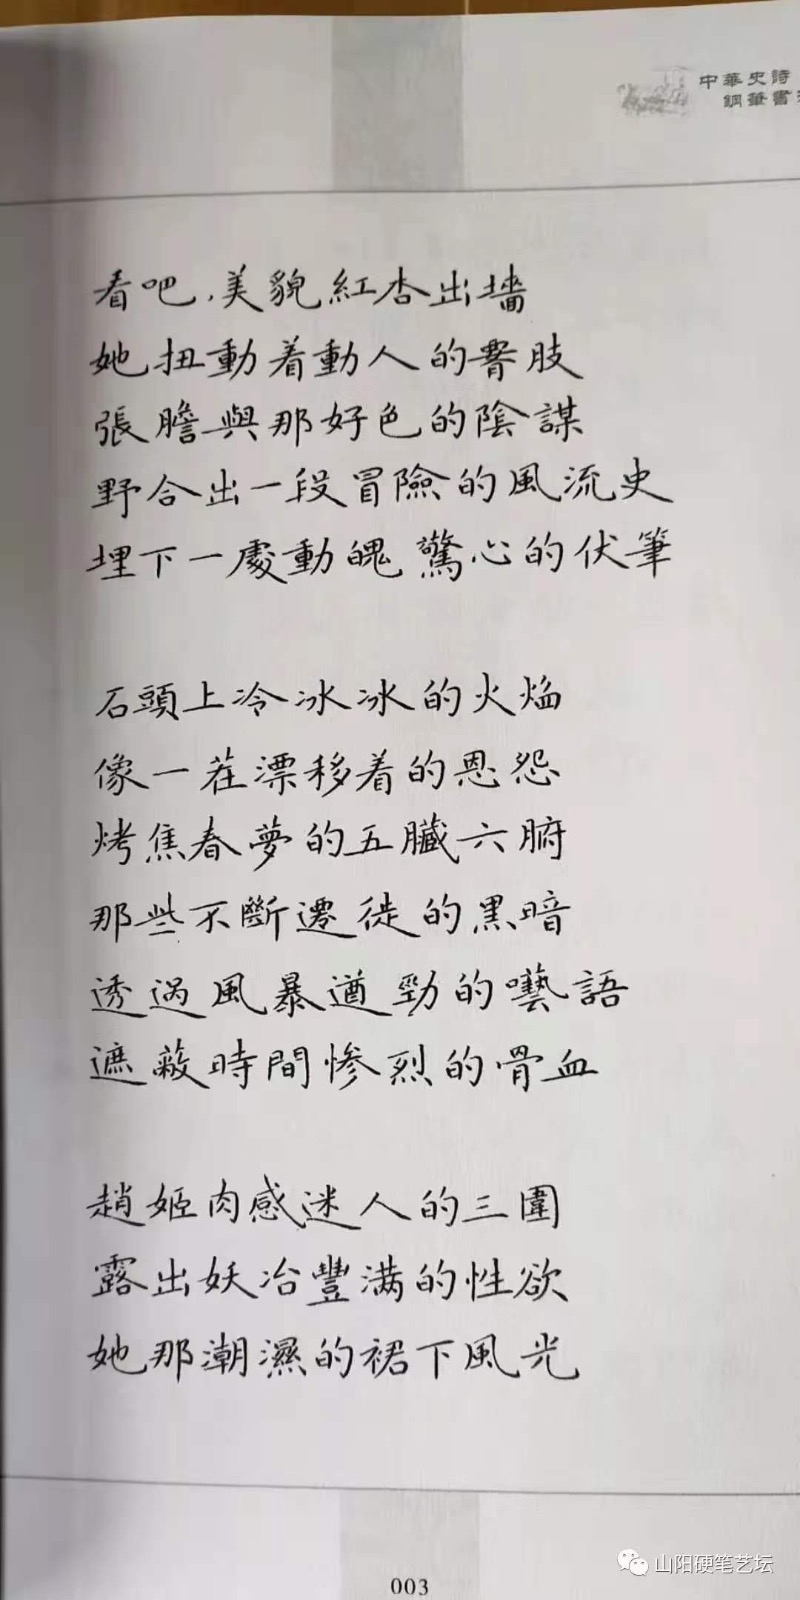 中華史詩
鋼筆書法
看吧，美貌紅杏出墻
她扭動着動人的臀肢
張膽與那好色的陰謀
野合出一段冒險的風流史
埋下一處動魄驚心的伏筆
石頭上冷冰冰的火焰
像一茬漂移着的恩怨
烤焦春夢的五臟六腑
那些不斷遷徙的黑暗
透過風暴遒勁的囈語
遮蔽時間慘烈的骨血
趙姬肉感迷人的三圍
露出妖冶豐满的性欲
她那潮濕的裙下風光
003
山阳硬笔艺坛